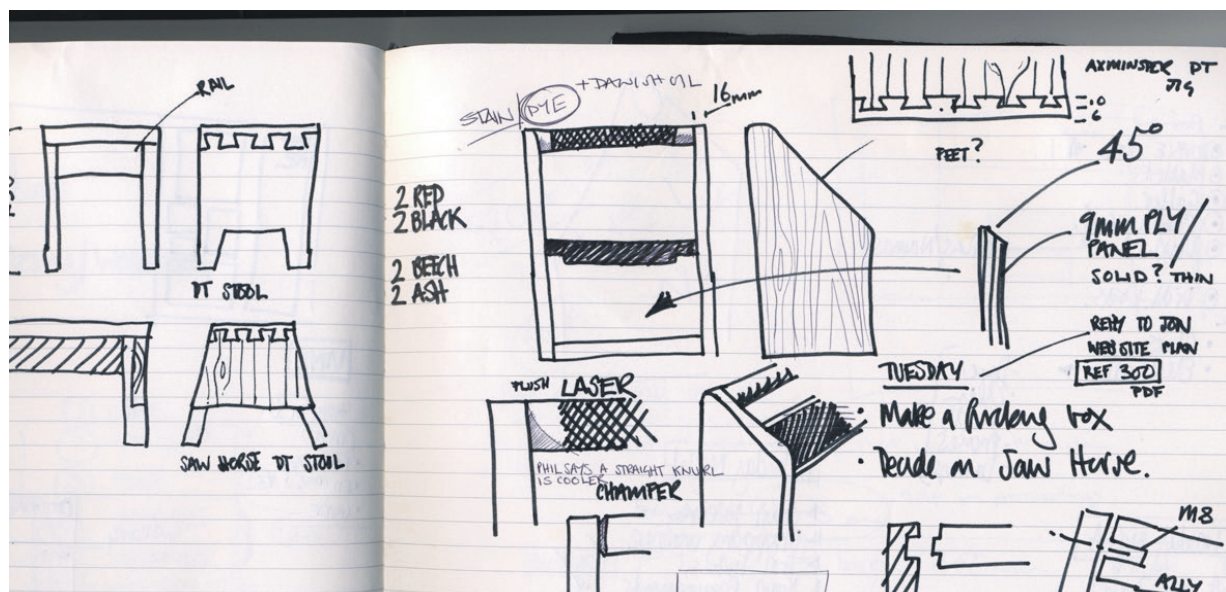 RAIL
DT STOOL
SAW HORSE DT STOOL
STAIN/DYE + DANISH OIL
16mm
2 RED
2 BLACK
2 BEECH
2 ASH
AXMINSTER DT
JIG
FEET?
45°
9mm PLY/
PANEL
SOLID? THIN
REPLY TO JON
WEBSITE PLAN
REF 300
PDF
TUESDAY
• Make a fucking box
• Decide on Saw Horse.
FLUSH LASER
PHIL SAYS A STRAIGHT KNURL
IS COOLER
CHAMFER
M8
ALLY